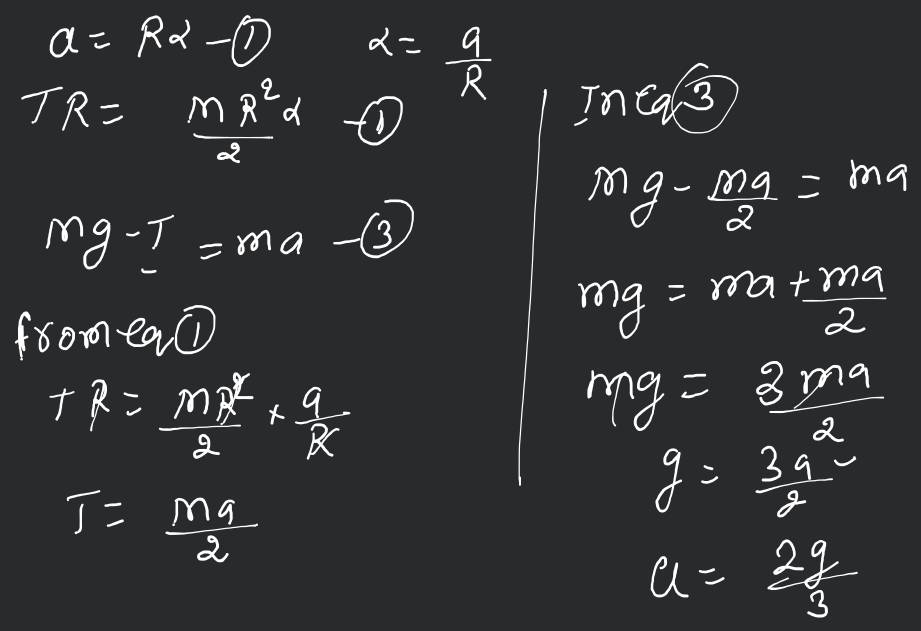 a = Rα - ① α = a/R
TR = mR²α/2 - ①
mg - T = ma - ③
from eq ①
TR = mR²/2 × a/R
T = ma/2
In eq ③
mg - ma/2 = ma
mg = ma + ma/2
mg = 3ma/2
g = 3a/2
a = 2g/3